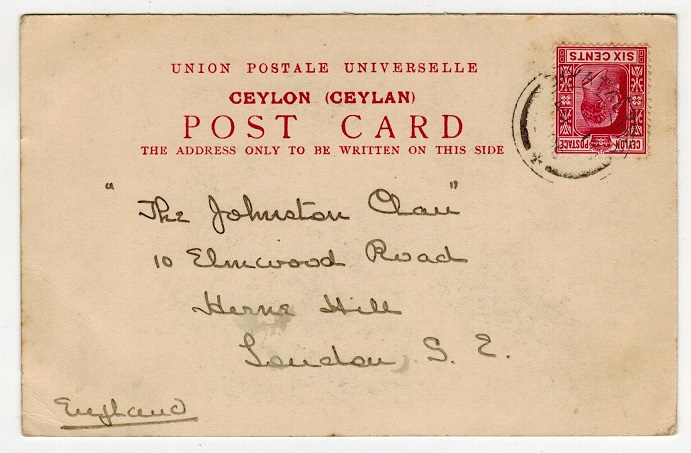 UNION POSTALE UNIVERSELLE
CEYLON (CEYLAN)
POST CARD
THE ADDRESS ONLY TO BE WRITTEN ON THIS SIDE
SIX CENTS
CEYLON POSTAGE
"The Johnston Clan"
10 Elmwood Road
Herne Hill
London, S. E.
England